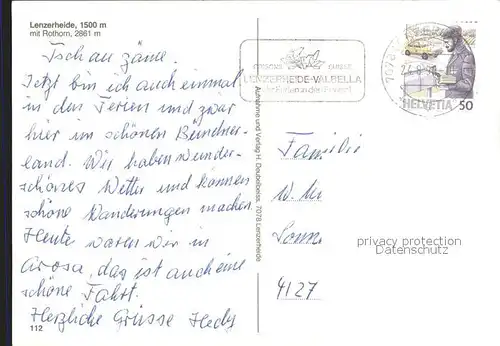 Lenzerheide, 1500 m
mit Rothorn, 2861 m
Tschau zäme.
Jetzt bin ich auch einmal
in den Ferien und zwar
hier im schönen Bündner-
land. Wir haben wunder-
schönes Wetter und können
schöne Wanderungen machen.
Heute waren wir in
Arosa, das ist auch eine
schöne Fahrt.
Herzliche Grüsse Hedy
112
Aufnahme und Verlag H. Deubelbeiss, 7078 Lenzerheide
LENZERHEIDE-VALBELLA
7078
HELVETIA 50
Familie
4127
privacy protection
Datenschutz